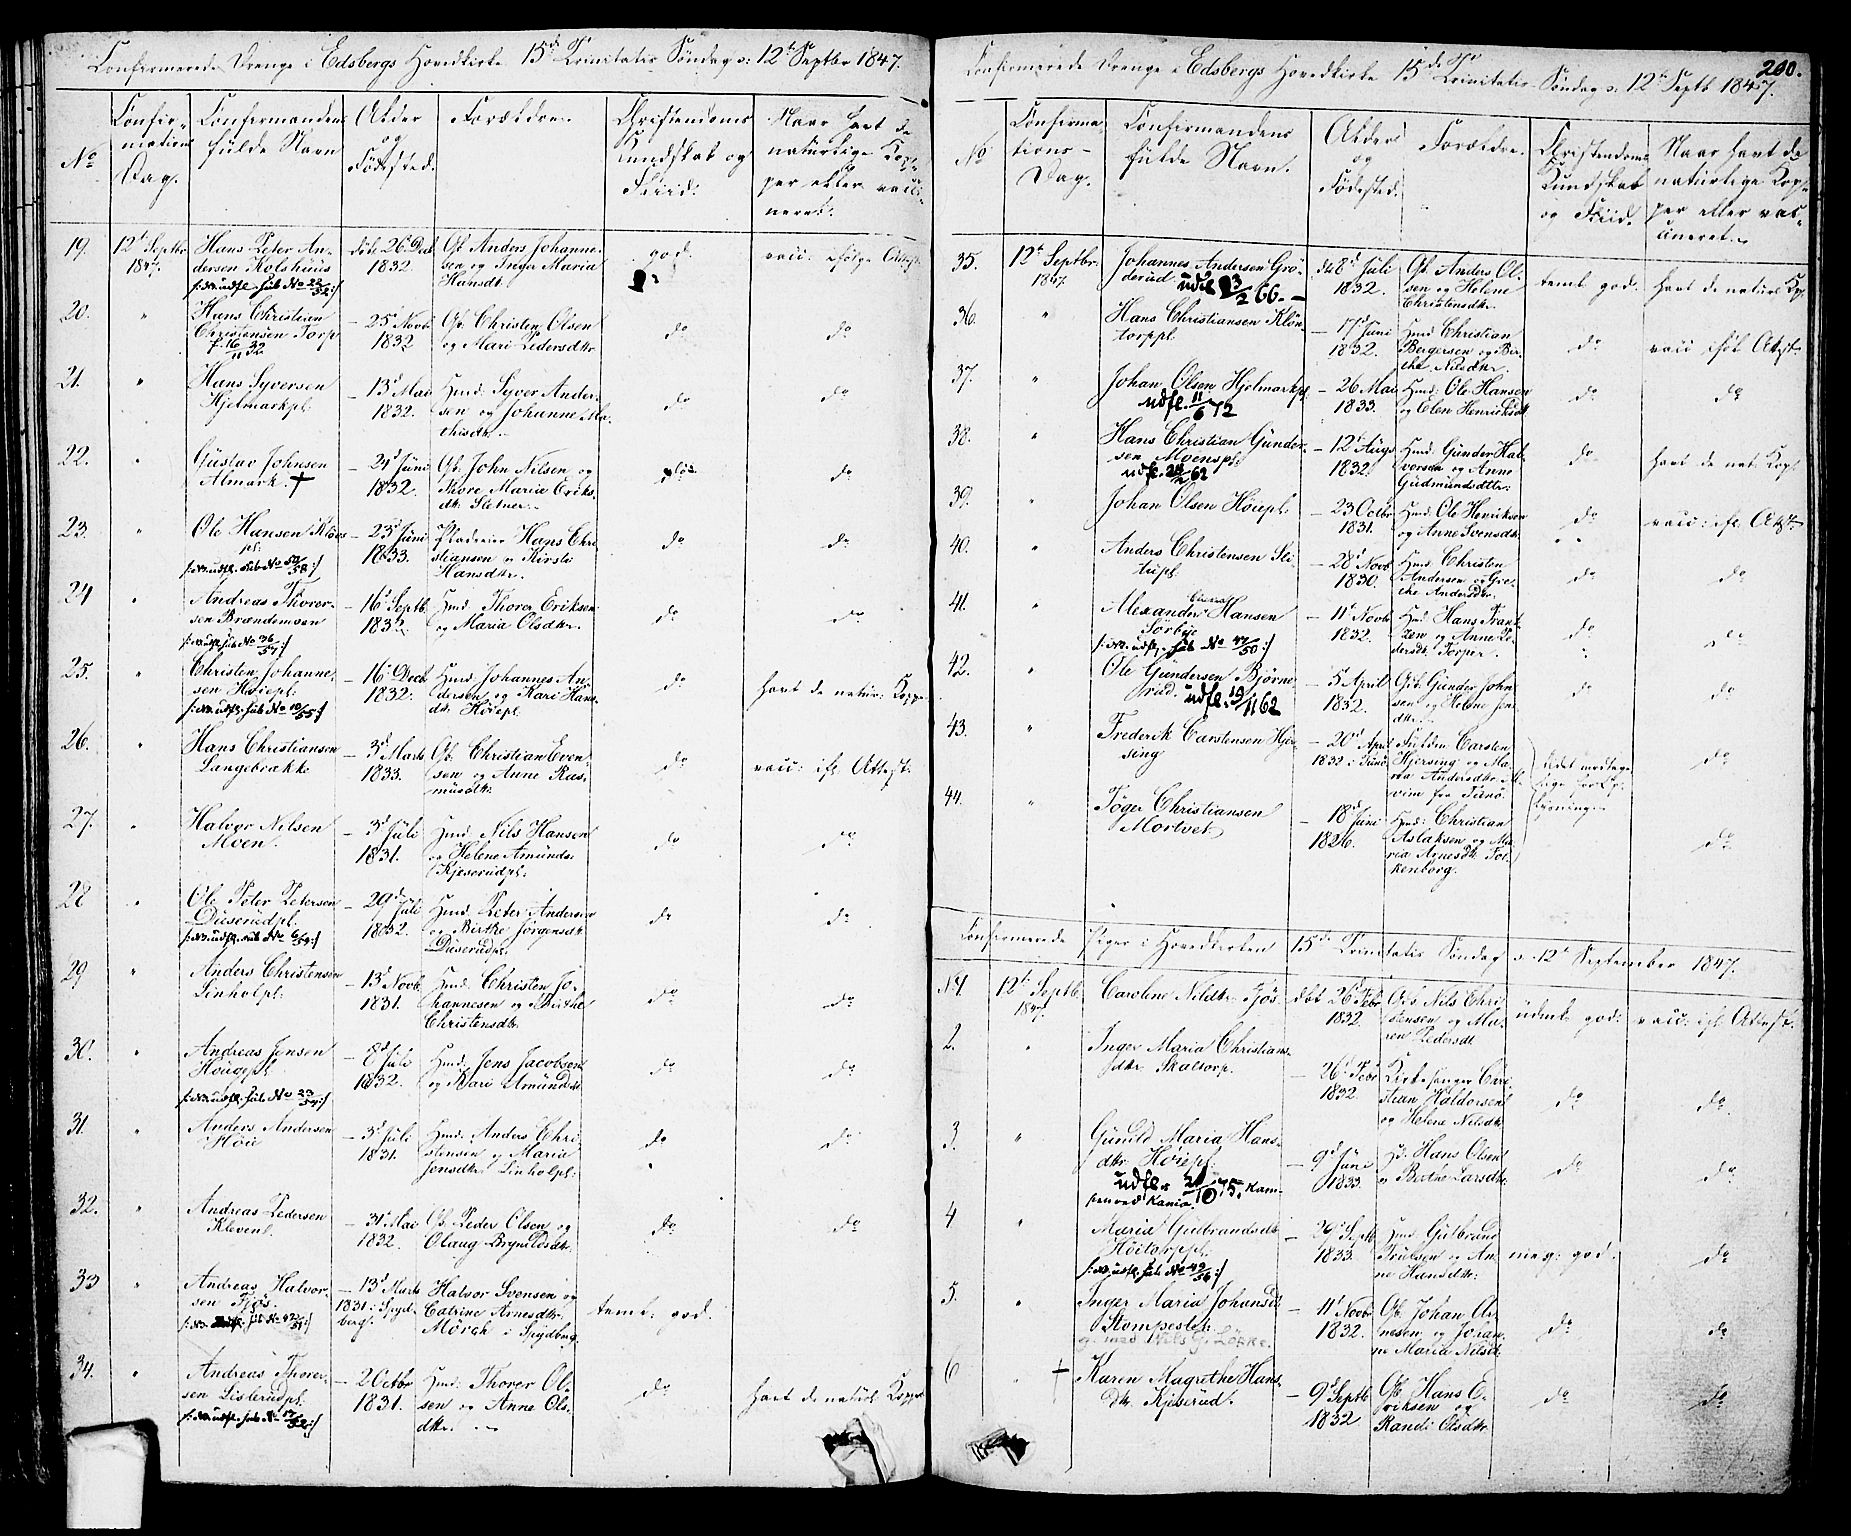 Confirmerede Drenge i Edsbergs Hovedkirke 15de Trinitatis Søndag d: 12te Septbr 1847.
No
Confir-
mations
Dag.
Confirmandens
fulde Navn
Alder
og
Fødested.
Forældre.
Christendoms
Kundskab og
Fliid.
Naar havt de
naturlige Kop-
per eller vacci-
neret.
19.
12te Septbr
1847.
Hans Peter An-
dersen Kolshuus
/: NB. udfl. sub No 22/52 :/
døbt 26 Dec
1832.
Gb. Anders Johanne-
sen og Inger Maria
Hansdtr
god.
vacc: ifølge Attest
20.
"
Hans Christian
Christensen Torp
f. 16/11 32
— 25 Novb
1832
Gb. Christen Olsen
og Mari Pedersdtr
do
do
21.
"
Hans Syversen
Hjelmarkpl.
— 13d Mai
1832.
Huusd. Syver Ander-
sen og Johanne Ma-
thisdtr.
do
do
22.
"
Gustav Johnsen
Almark. †
— 24d Juni
1832.
Gb. John Nilsen og
Thore Maria Eriks-
dtr. Sletner.
do
23.
"
Ole Hansen Kløs
pl:
/: NB. udfl. sub No 50/58 :/
— 23d Juni
1833.
Hans Chri-
stiansen o Kirsti
Hansdtr.
do
do
24
"
Andreas Thorer-
sen Brændemoen
/: NB. udfl. sub No 36/57 :/
— 16d Septb
1832.
Huusd. Thorer Eriksen
og Maria Olsdtr.
do
do
25.
"
Christen Johanne-
sen Høiepl:
/: NB. udfl. sub No 10/55 :/
— 16d Decb
1832.
Huusd. Johannes An-
dersen og Kari Hans-
dtr. Høiepl.
do
havt de natur: Kopper
26.
"
Hans Christiansen
Langebrække
— 3d Marts
1833.
Gb. Christian Even-
sen og Anne Ras-
musdtr.
do
vacc: ifl. Attest:
27.
"
Halvor Nilsen
Moen.
— 3d Juli
1831.
Huusd. Nils Hansen
og Helene Amunds-
Kjeserudpl.
do
do
28
"
Ole Peter Petersen
Duserudpl.
/: NB. udfl. sub No 6/54 :/
— 29d Juli
1832.
Huusd. Peter Andersen
og Birthe Jørgensdtr
Duserudpl.
do
do
29
"
Anders Christensen
Linholpl:
— 13d Novb
1831.
Huusd. Christen Jo-
hannesen og Birthe
Christensdtr.
do
do
30.
"
Andreas Jensen
Hougepl.
/: NB. udfl. sub No 23/54 :/
— 8d Juli
1832.
Huusd. Jens Jacobsen
og Kari Amundsdtr
do
do
31.
"
Anders Andersen
Høie
— 3d Juli
1831.
Huusd. Anders Chri-
stensen og Maria
Jensdtr: Linholpl:
do
do
32.
"
Andreas Pedersen
Klevenl.
— 31 Mai
1832.
Gb. Peder Olsen og
Olaug Brynildsdtr.
do
do
33
"
Andreas Halvor-
sen Fjøs.
/: NB. udfl. sub No 42/51 :/
— 13d Marts
1831: Spyd-
berg.
Halvor Svensen og
Catrine Arnesdtr.
Mørch i Spydberg.
temt: god.
34.
"
Andreas Thorer-
sen Lislerudpl.
/: NB. udfl. sub No 17/52 :/
— 2 Octbr
1831.
Huusd: Thorer Ol-
sen og Anne Ols-
dtr.
do
havt de naturl Kopper
Confirmerede Drenge i Edsbergs Hovedkirke 15de Trinitatis Søndag d: 12te Septb 1847.
200.
No
Confirma-
tions-
Dag.
Confirmandens
fulde Navn.
Alder
og
Fødested.
Forældre.
Christendoms
Kundskab
og Fliid.
Naar havt de
naturlige Kop-
per eller vac-
cineret.
35.
12te Septbr.
1847.
Johannes Andersen Grö-
derud. udfl 23/2 66.—
d 8d Juli
1832.
Gb. Anders Ol-
sen og Helene
Christensdtr.
temt god.
havt de natur Kop.
36.
"
Hans Christiansen Klön-
torppl.
— 17d Juni
1832.
Huusd Christian
Bergersen og Ber-
the Nilsdtr.
do
vacc ifl Attest
37.
"
Johan Olsen Hjelmarkpl
udfl. 11/6 72
— 26 Mai
1833.
Huusd. Ole Hansen
og Elen Henriksdtr
do
do
38.
"
Hans Christian Gunder-
sen Moenspl:
udfl. 24/2 62
— 12d Augs
1832.
Huusd. Gunder Hal-
vorsen og Anne
Gudmundsdtr:
do
havt de nat. Kop.
39.
"
Johan Olsen Höiepl.
— 23 Octbr
1831.
Huusd. Ole Henriksen
og Anne Svensdtr.
do
vacc: ifl. Attest
40.
"
Anders Christensen Sli-
tupl.
— 28d Novb
1830.
Huusd Christen
Andersen og Gre-
the Andersdtr.
do
do
41.
"
Alexander Hansen
Sörbye
/: NB. udfl. sub No 47/50 :/
— 11d Novb
1832.
Hans Frant-
zen og Anne Pe-
dersdtr. Torper.
do
do
42.
"
Ole Gundersen Björne-
rud. udfl. 19/11 62
— 5 April
1832.
Gb. Gunder John-
sen og Helene Jens
dtr.
do
do
43.
"
Frederik Carstensen Hjer-
sing
— 20d April
1832 i Tunø
Carsten
Hjersing og Ma-
ria Andersdtr.
fra Tunø.
do
44.
"
Töger Christiansen
Mortvet
— 18d Juni
1826.
Huusd: Christian
Aslaksen og Ma-
ria Arnesdtr. Fol-
kenborg.
do
Confirmerede Piger i Hovedkirken 15de Trinitatis Søndag d. 12te September 1847.
No 1.
12te Septb.
1847.
Carolene Nilsdtr. Fjös.
døbt 26d Febr
1832.
Gb Nils Chri-
stensen og Ma-
ren Pedersdt
udmt. god:
vacc: ifl. Attest.
2.
"
Inger Maria Christians-
dtr. Skaltorp.
— 26d Febr
1832.
Kirkesanger Chri-
stian Haldorsen
og Helene Nilsdtr
do
do
3.
"
Gunild Maria Hans-
dtr. Höiepl.
udfl. 21/10 75.
— 9d Juni
1833.
Hd. Hans Olsen
o Berthe Larsdtr.
do
do
4
"
Maria Gulbrandsdtr
Höitorppl.
/: NB. udfl. sub No 49/56 :/
— 29d Septb
1833.
Huusd Gulbrand
Trulsen og An-
ne Hansdtr.
meg: god.
do
5.
"
Inger Maria Johansdtr
Stompeslet.
g. med Nils G. Løkke.
— 11d Novb
1832.
Gb. Johan Ar-
nesen og Johan-
ne Maria Nilsd.
do
do
6
"
† Karen Magrethe Hans-
dtr. Kjeserud.
— 9d Septb
1832
Gb. Hans E-
riksen og
Randi Olsdtr.
do
do